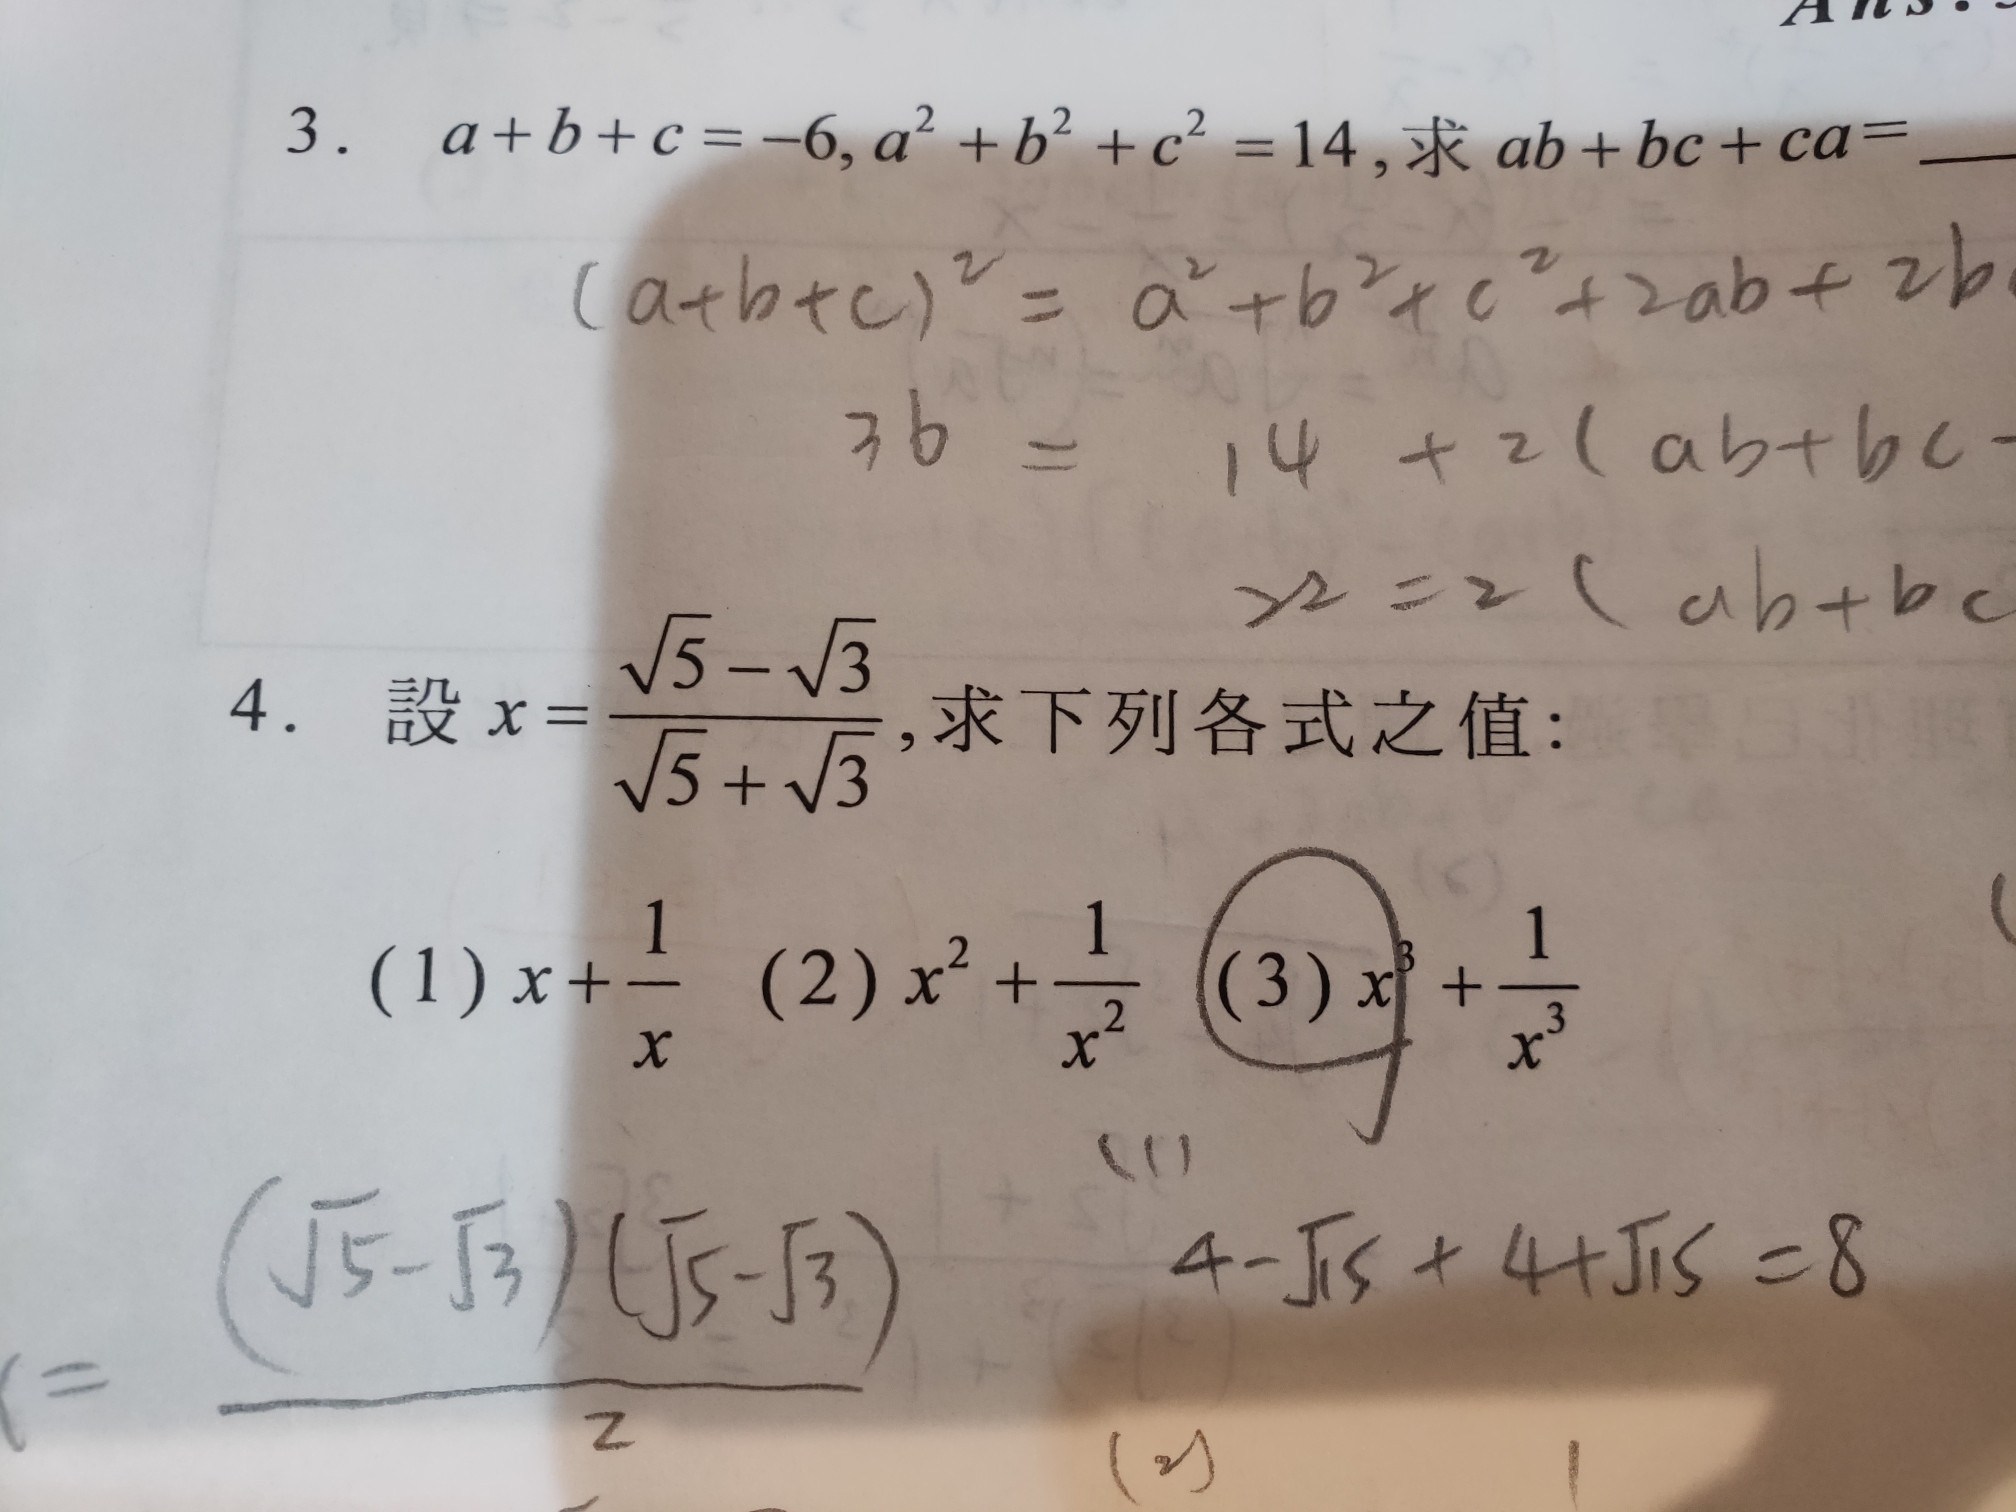 Ans:
3. a+b+c=-6, a²+b²+c²=14, 求 ab+bc+ca=
(a+b+c)² = a²+b²+c²+2ab+2b
36 = 14 + 2(ab+bc
22=2(ab+bc
4. 設 x=(√5-√3)/(√5+√3), 求下列各式之值:
(1) x+1/x (2) x²+1/x² (3) x³+1/x³
(1)
4-√15+4+√15=8
=(√5-√3)(√5-√3)/2
(2)